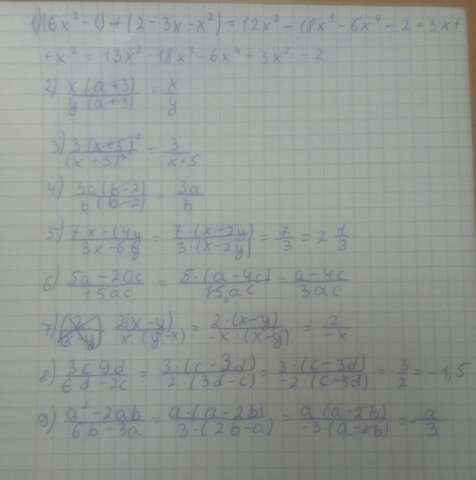 1) (6x² - 1) + (2 - 3x - x²) = 12x² - 18x³ - 6x⁴ - 2 + 3x +
+ x² = 13x² - 18x³ - 6x⁴ + 3x² - 2
2) x(a+3) / y(a+3) = x / y
3) 3(x+5)² / (x+5)³ = 3 / x+5
4) 3a(b-2) / b(b-2) = 3a / b
5) 7x-14y / 3x-6y = 7·(x-2y) / 3·(x-2y) = 7/3 = 2 1/3
6) 5a-20c / 15ac = 5·(a-4c) / 15ac = a-4c / 3ac
7) 2(x-y) / x·(y-x) = 2·(x-y) / -x·(x-y) = 2 / -x
8) 3c 9d / 6d-2c = 3·(c-3d) / 2·(3d-c) = 3·(c-3d) / -2·(c-3d) = -3/2 = -1,5
9) a²-2ab / 6b-3a = a·(a-2b) / 3·(2b-a) = a(a-2b) / -3·(a-2b) = -a/3